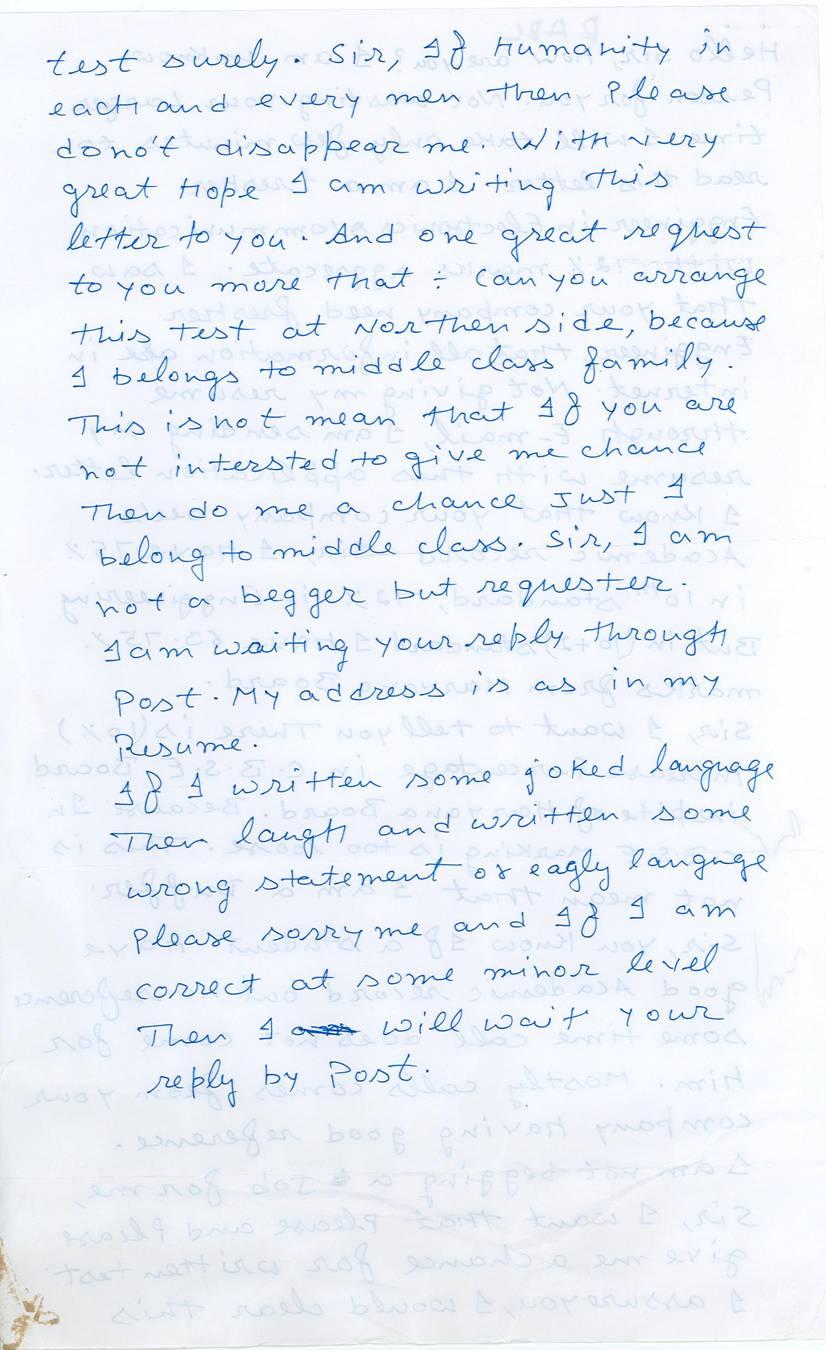 test surely. Sir, If Humanity in
each and every men then Please
dono't disappear me. With very
great Hope I am writing this
letter to you. And one great request
to you more that ÷ Can you arrange
this test at Northen side, because
I belongs to middle class family.
This is not mean that If you are
not intersted to give me chance
Then do me a chance Just I
belong to middle class. Sir, I am
not a begger but requester.
I am waiting your reply through
Post. My address is as in my
Resume.
If I written some joked language
Then laugh and written some
wrong statement or eagly languge
Please sorry me and If I am
correct at some minor level
Then I will wait your
reply by Post.